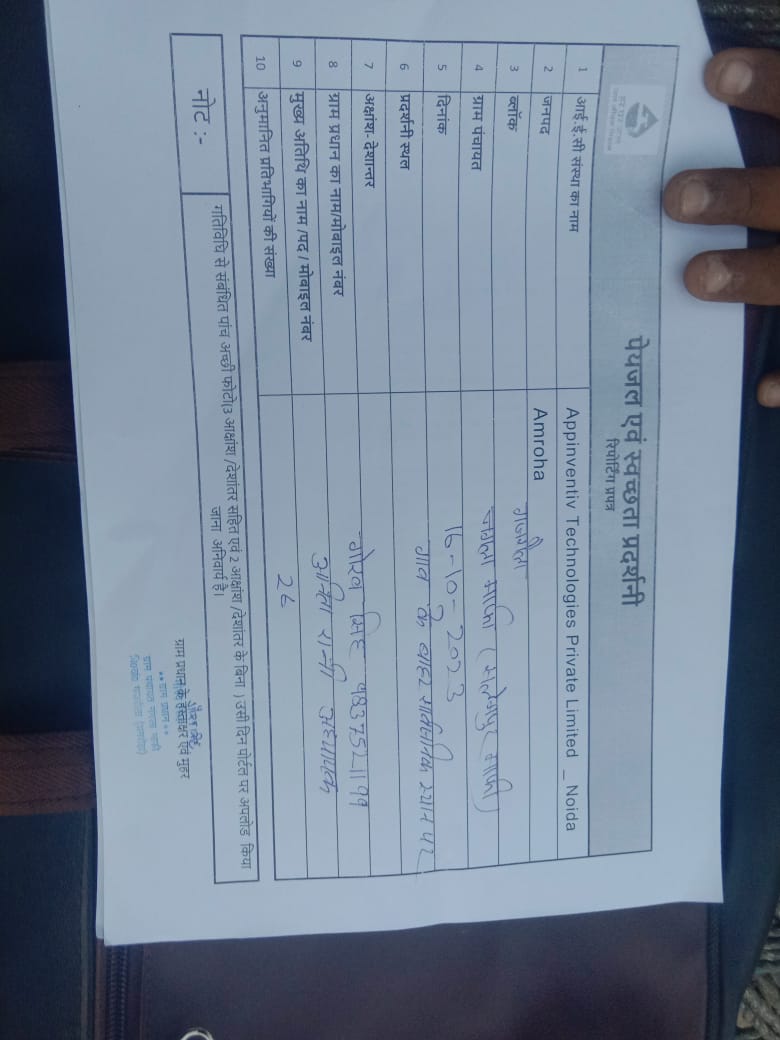 पेयजल एवं स्वच्छता प्रदर्शनी
रिपोर्टिंग प्रपत्र
1 आई.ई.सी संस्था का नाम Appinventiv Technologies Private Limited _ Noida
2 जनपद Amroha
3 ब्लॉक
4 ग्राम पंचायत माफी (सलेमपुर माफी)
5 दिनांक 16-10-2023
6 प्रदर्शनी स्थल गाव के बाहर सार्वजनिक स्थान पर
7 अक्षांश- देशान्तर
8 ग्राम प्रधान का नाम/मोबाइल नंबर सिंह
9 मुख्य अतिथि का नाम /पद / मोबाइल नंबर
10 अनुमानित प्रतिभागियों की संख्या 26
नोट :- गतिविधि से संबंधित पांच अच्छी फोटो(3 आक्षांश /देशांतर सहित एवं 2 आक्षांश /देशांतर के बिना ) उसी दिन पोर्टल पर अपलोड किया
जाना अनिवार्य है।
ग्राम प्रधान के हस्ताक्षर एवं मुहर